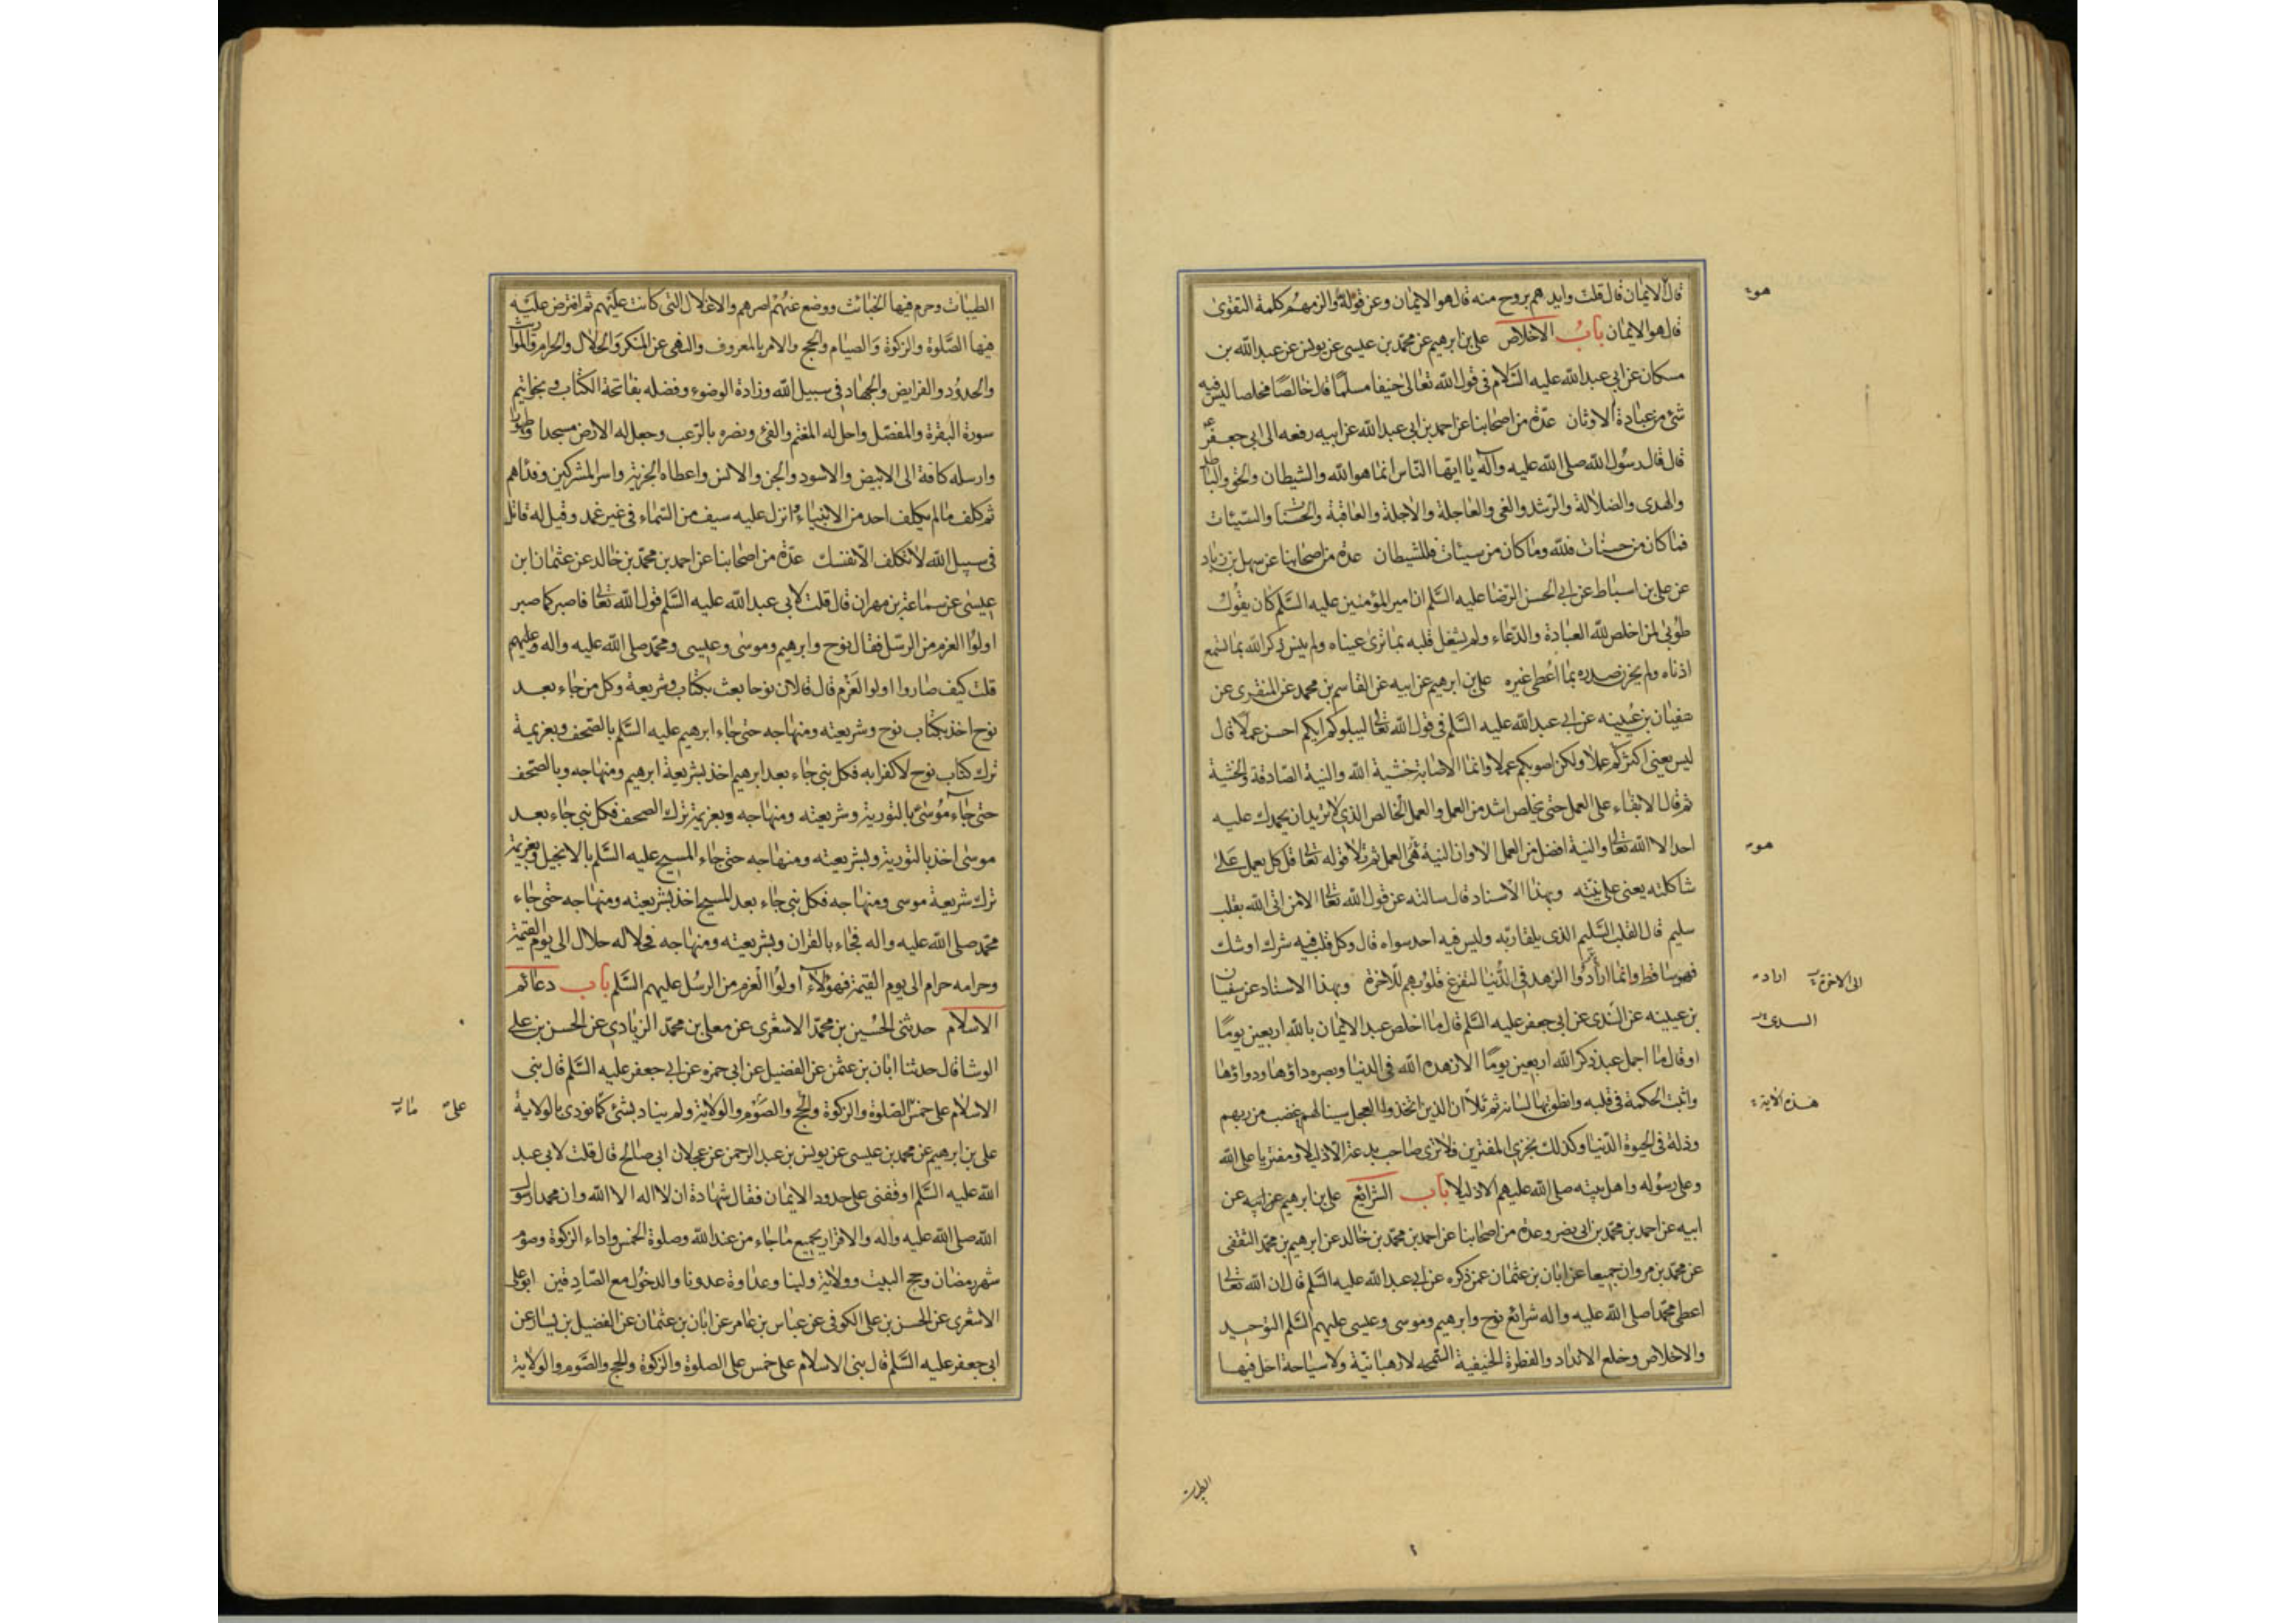 قال الايمان قال قلت وايدهم بروح منه قال هو الايمان وعن قوله والزمهم كلمة التقوى
قال هو الايمان باب الاخلاص على بن ابرهيم عن محمد بن عيسى عن يونس عن عبد الله بن
مسكان عن ابى عبد الله عليه السلام فى قول الله تعالى حنيفا مسلما قال خالصا مخلصا ليس فيه
شئ من عبادة الاوثان عدة من اصحابنا عن احمد بن ابى عبد الله عن ابيه رفعه الى ابى جعفر
قال قال رسول الله صلى الله عليه وآله يا ايها الناس انما هو الله والشيطان والحق والباطل
والهدى والضلالة والرشد والغى والعاجلة والاجلة والعاقبة والحسنات والسيئات
فما كان من حسنات فلله وما كان من سيئات فللشيطان عدة من اصحابنا عن سهل بن زياد
عن على بن اسباط عن ابى الحسن الرضا عليه السلم ان امير المؤمنين عليه السلم كان يقول
طوبى لمن اخلص لله العبادة والدعاء ولم يشغل قلبه بما ترى عيناه ولم ينس ذكر الله بما تسمع
اذناه ولم يحزن صدره بما اعطى غيره على بن ابرهيم عن ابيه عن القاسم بن محمد عن المنقرى عن
سفيان بن عيينه عن ابى عبد الله عليه السلم فى قول الله تعالى ليبلوكم ايكم احسن عملا قال
ليس يعنى اكثركم عملا ولكن اصوبكم عملا وانما الاصابة خشية الله والنية الصادقة والخشية
ثم قال الابقاء على العمل حتى يخلص اشد من العمل والعمل الخالص الذى لا تريد ان يحمدك عليه
احد الا الله تعالى والنية افضل من العمل الا وان النية هى العمل ثم تلا قوله تعالى قل كل يعمل على
شاكلته يعنى على نيته وبهذا الاسناد قال سالته عن قول الله تعالى الا من اتى الله بقلب
سليم قال القلب السليم الذى يلقا ربه وليس فيه احد سواه قال وكل قلب فيه شرك او شك
فهو ساقط وانما ارادوا الزهد فى الدنيا لتفرغ قلوبهم للاخرة وبهذا الاسناد عن سفيان
بن عيينه عن الندى عن ابى جعفر عليه السلم قال ما اخلص عبد الايمان بالله اربعين يوما
او قال ما اجمل عبد ذكر الله اربعين يوما الا زهده الله فى الدنيا وبصره داؤها ودواؤها
واثبت الحكمة فى قلبه وانطق بها لسانه ثم تلا ان الذين اتخذوا العجل سينالهم غضب من ربهم
وذلة فى الحيوة الدنيا وكذلك نجزى المفترين فلا ترى صاحب بدعة الا ذليلا ومفتريا على الله
وعلى رسوله واهل بيته صلى الله عليهم الا ذليلا باب الشرائع على بن ابرهيم عن ابيه عن
ابيه عن احمد بن محمد بن ابى نصر وعدة من اصحابنا عن احمد بن محمد بن خالد عن ابرهيم بن محمد الثقفى
عن محمد بن مروان جميعا عن ابان بن عثمان عمن ذكره عن ابى عبد الله عليه السلم قال ان الله تعالى
اعطى محمدا صلى الله عليه واله شرائع نوح وابرهيم وموسى وعيسى عليهم السلم التوحيد
والاخلاص وخلع الانداد والفطرة الحنيفية السمحه لا رهبانية ولا سياحة احل فيها
هو
هو
اراد
الى الاخرة
السدى
هذه الاية
الطيبات
الطيبات وحرم فيها الخبائث ووضع عنهم اصرهم والاغلال التى كانت عليهم ثم افترض عليه
فيها الصلوة والزكوة والصيام والحج والامر بالمعروف والنهى عن المنكر والحلال والحرام والمواريث
والحدود والفرايض والجهاد فى سبيل الله وزادة الوضوء وفضله بفاتحة الكتاب وبخواتيم
سورة البقرة والمفصل واحل له المغنم والفئ ونصره بالرعب وجعل له الارض مسجدا وطهورا
وارسله كافة الى الابيض والاسود والجن والانس واعطاه الجزية واسر المشركين وفداهم
ثم كلف ما لم يكلف احد من الانبياء وانزل عليه سيف من السماء فى غير غمد وقيل له قاتل
فى سبيل الله لا تكلف الا نفسك عدة من اصحابنا عن احمد بن محمد بن خالد عن عثمان ابن
عيسى عن سماعة بن مهران قال قلت لابى عبد الله عليه السلم قول الله تعالى فاصبر كما صبر
اولوا العزم من الرسل فقال نوح وابرهيم وموسى وعيسى ومحمد صلى الله عليه واله وعليهم
قلت كيف صاروا اولوا العزم قال قال لان نوحا بعث بكتاب وشريعة وكل من جاء بعد
نوح اخذ بكتاب نوح وشريعته ومنهاجه حتى جاء ابرهيم عليه السلم بالصحف وبعزيمة
ترك كتاب نوح لا كفرا به فكل نبى جاء بعد ابرهيم اخذ بشريعة ابرهيم ومنهاجه وبالصحف
حتى جاء موسى بالتورية وشريعته ومنهاجه وبعزيمة ترك الصحف فكل نبى جاء بعد
موسى اخذ بالتورية وبشريعته ومنهاجه حتى جاء المسيح عليه السلم بالانجيل وبعزيمة
ترك شريعة موسى ومنهاجه فكل نبى جاء بعد المسيح اخذ بشريعته ومنهاجه حتى جاء
محمد صلى الله عليه واله فجاء بالقران وبشريعته ومنهاجه فحلاله حلال الى يوم القيمة
وحرامه حرام الى يوم القيمة فهؤلاء اولوا العزم من الرسل عليهم السلم باب دعائم
الاسلام حدثنى الحسين بن محمد الاشعرى عن معلى بن محمد الزيادى عن الحسن بن على
الوشا قال حدثنا ابان بن عثمن عن الفضيل عن ابى حمزه عن ابى جعفر عليه السلم قال بنى
الاسلام على خمس الصلوة والزكوة والحج والصوم والولاية ولم يناد بشئ كما نودى بالولاية
على بن ابرهيم عن محمد بن عيسى عن يونس بن عبد الرحمن عن عجلان ابى صالح قال قلت لابى عبد
الله عليه السلم اوقفنى على حدود الايمان فقال شهادة ان لا اله الا الله وان محمدا رسول
الله صلى الله عليه واله والاقرار بجميع ما جاء من عند الله وصلوة الخمس واداء الزكوة وصوم
شهر رمضان وحج البيت وولاية ولينا وعداوة عدونا والدخول مع الصادقين ابو على
الاشعرى عن الحسن بن على الكوفى عن عباس بن عامر عن ابان بن عثمان عن الفضيل بن يسار عن
ابى جعفر عليه السلم قال بنى الاسلام على خمس على الصلوة والزكوة والحج والصوم والولاية
على